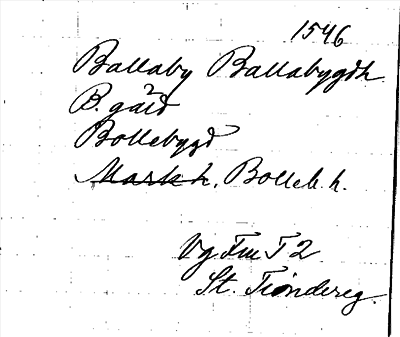 1546
Ballaby Ballabygdh
B. gård
Bollebygd
Markh. Bolleb. h.
Vg Fm T 2
St. Tiondereg.